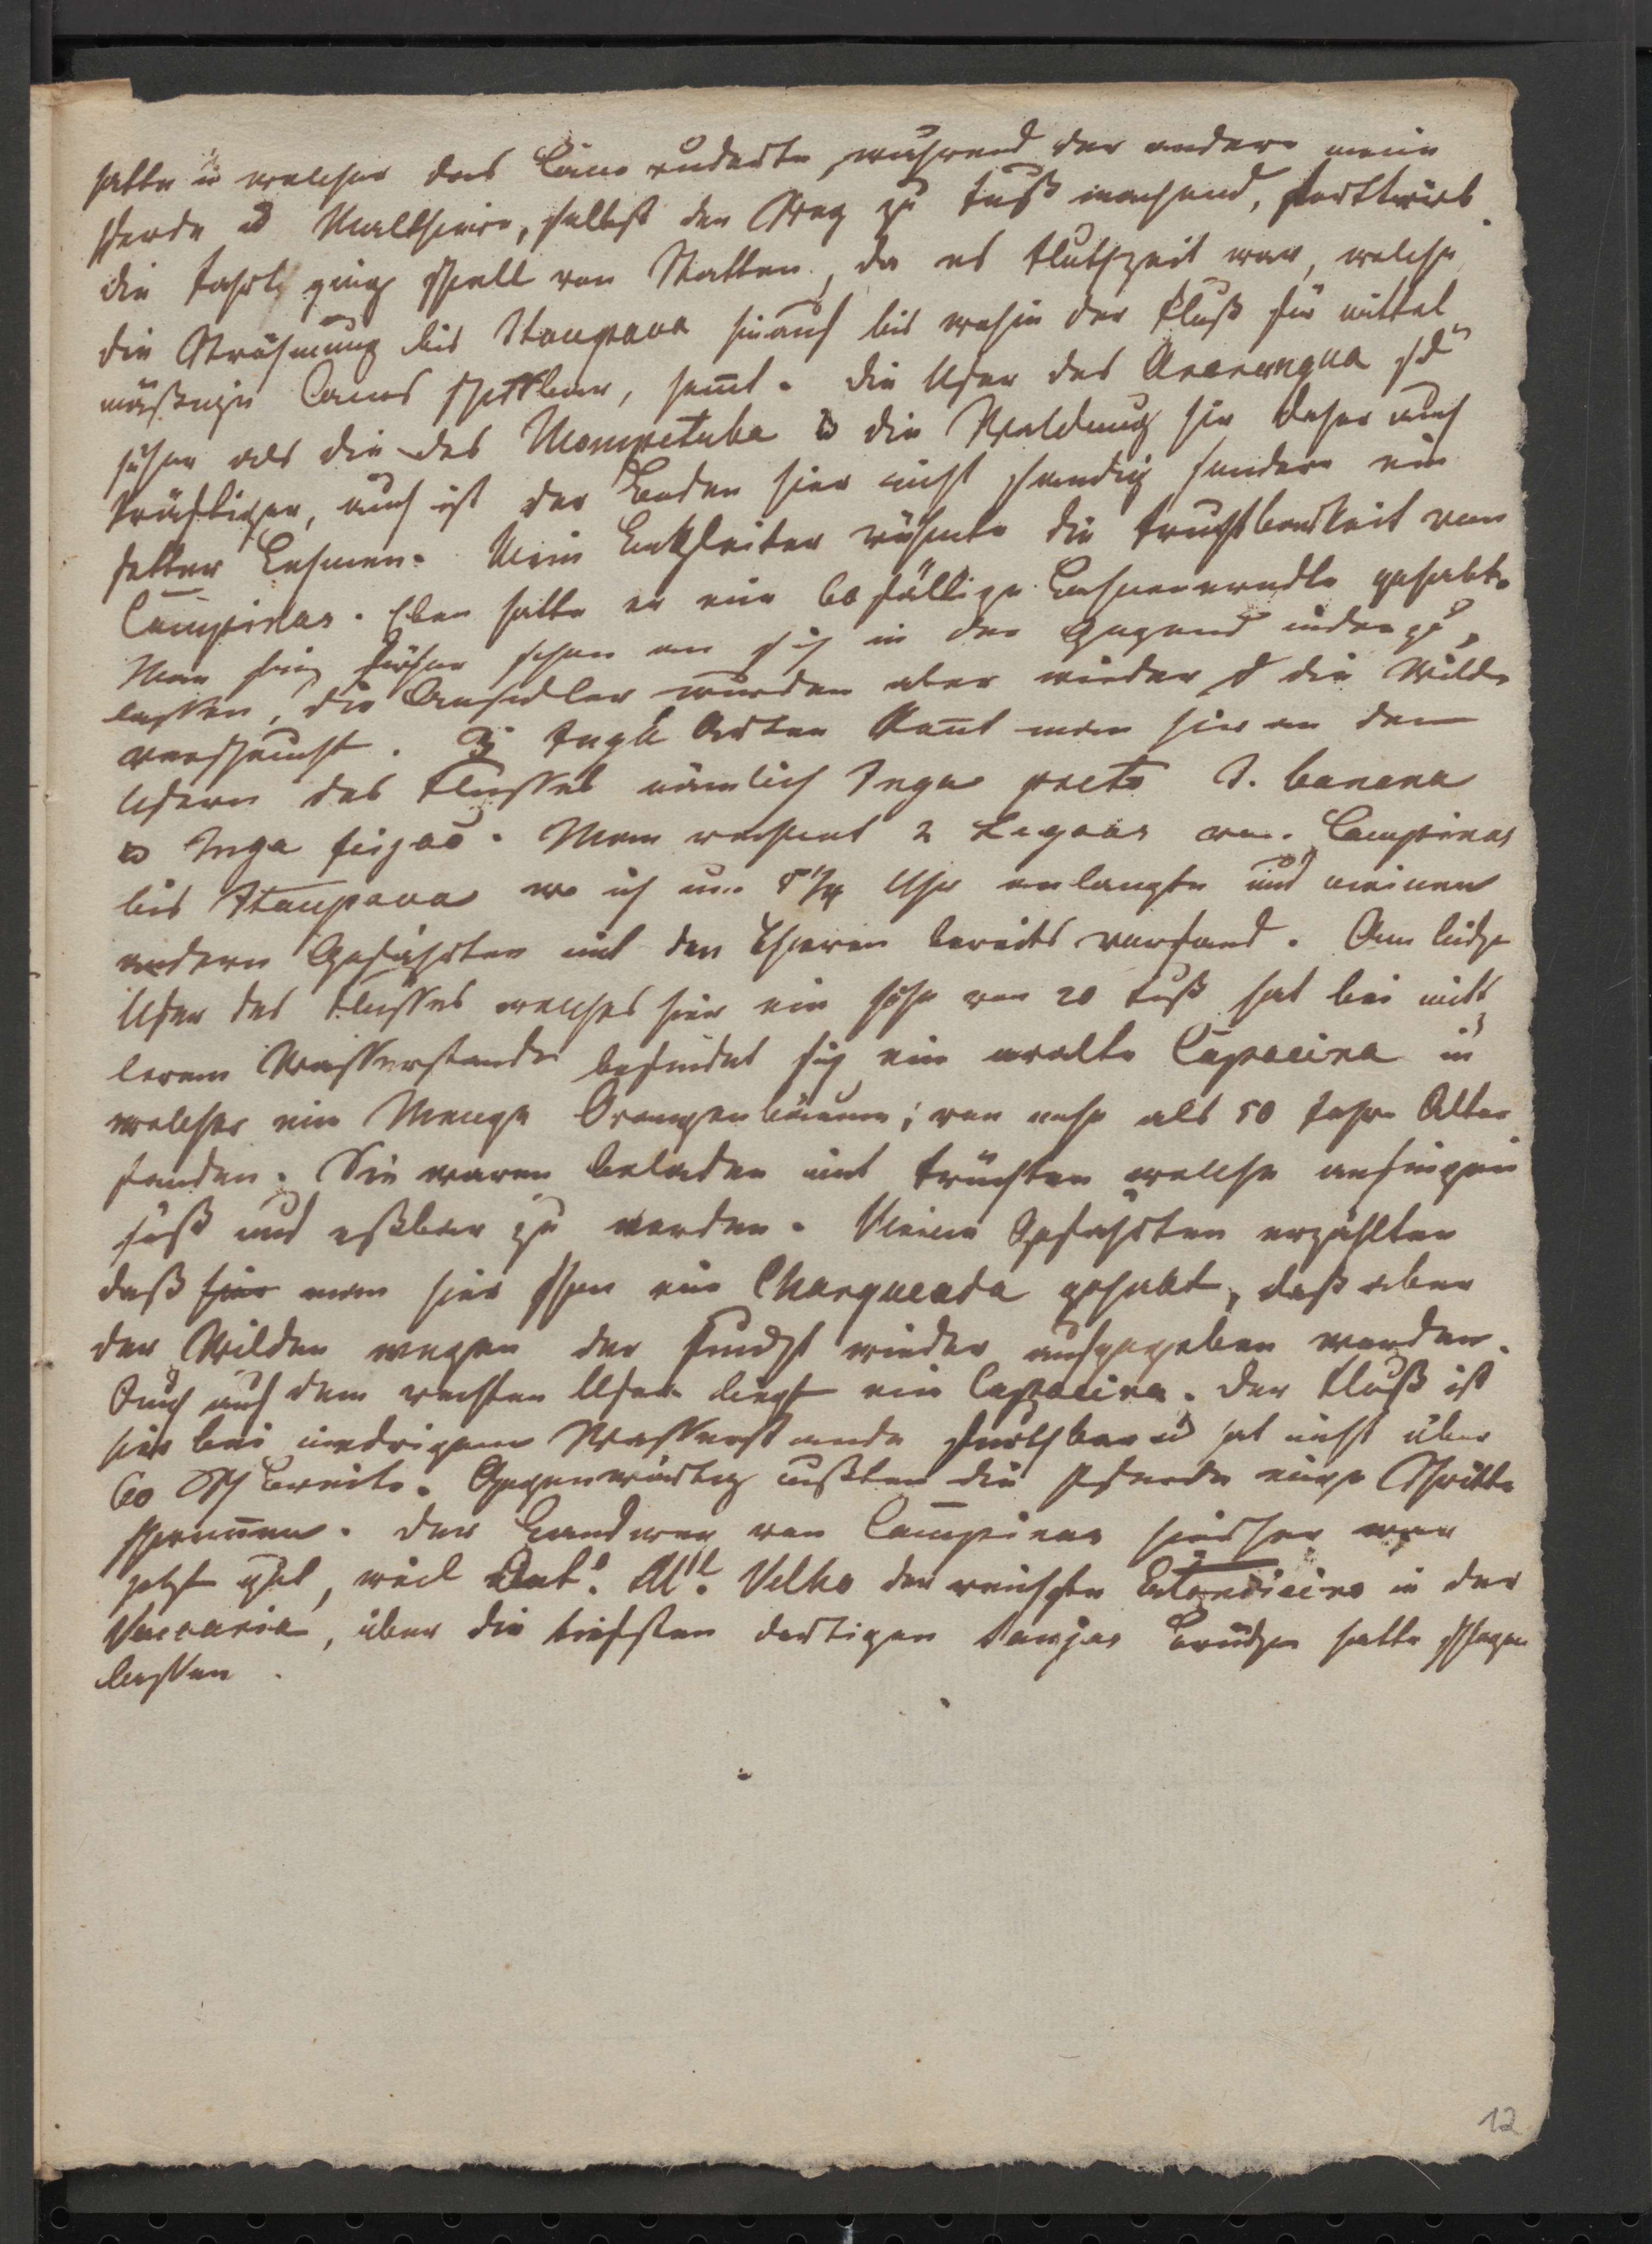 hatte u welcher das Cano ruderte, während der andere meine
Pferde u Maulthiere, selbst den Weg zu Fuß machend, forttrieb.
die Fahrt ging schnell von Statten, da es Fluthzeit war, welche
die Ströhmung bis Itaupava hinauf bis wohin der Fluß für mittel
mäßige Canos schiffbar, hemt. die Ufer des Ararangua sd
höher als die des Mampetuba u die Waldung hier daher auch
kräftiger, auch ist der Boden hier nicht sandig sondern ein
fetter Lehmen. Mein Begleiter rühmte die Fruchtbarkeit von
Campinas. Eben hatte er eine 60 fältige Bohnenerndte gehabt.
Man fing früher schon an sich in der Gegend niederzu
lassen, die Ansidler wurden aber wieder d die Wilde
verscheucht. 3 Inga Arten kennt man hier an den
Ufern des Flusses nämlich Inga preto I. banana
u Inga feijaõ. Man rechnet 2 Legoas von Campinas
bis Itaupava wo ich um Uhr anlangte und meinen
andern Gefährten mit den Thieren bereits vorfand. Am linken
Ufer des Flusses welches hier eine Höhe von 20 Fuß hat bei mitt
lerem Wasserstande befindet sich eine uralte Capoeira in
welcher eine Menge Orangenbäume, von mehr als 50 Jahre Alter
standen. Sie waren beladen mit Früchten welche anfingen
süß und eßbar zu werden. Meine Gefährten erzählten
daß hier man hier schon eine Charqueada gehabt, daß aber
der Wilden wegen der wieder aufgegeben worden.
Auch auf dem rechten Ufer liegt eine Capoeira. der Fluß ist
hier bei niedrigem Wasserstande furthbar u hat nicht über
60 Sch Breite. Gegenwärtig mußten die Pferde einige Schritte
schwimmen. der Landweg von Campinas hierher war
jetzt gut, weil Ant.º Velho der reichste in der
Vaccaria, über die tiefsten dortigen Sanjas Brücken hatte schlagen
lassen.
12